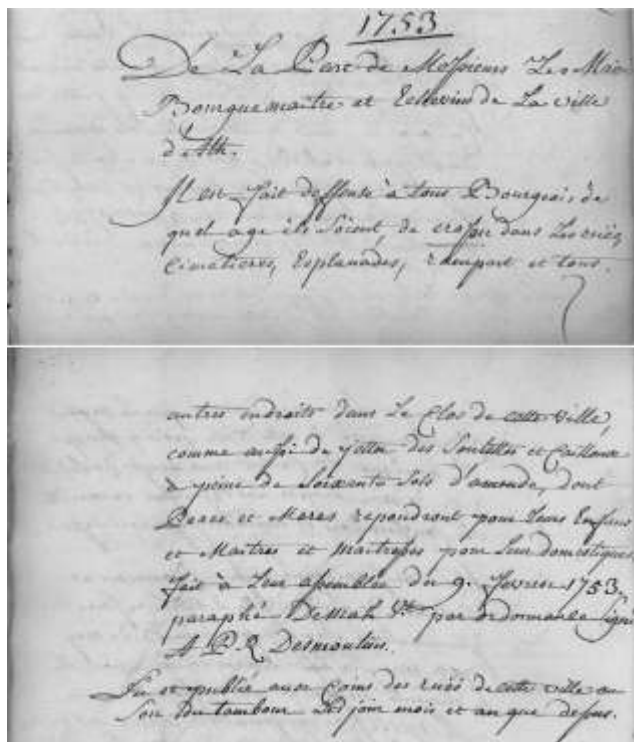 1753
De La Part de Messieurs Les Maie
Bourguemaitre et Echevins de La ville
d'Ath.
Il est fait deffense à tous Bourgeois, de
quel age ils soient, de crosser dans Les rües,
Cimetieres, Esplanades, rampart et tous.
autres endroits dans Le Clos de cette ville,
comme aussi de jetter des Pontelles et Cailloux
à peine de Soixante Sols d'amende, dont
Peres et Meres repondront pour Leurs Enfans
et Maitres et maitresses pour Leur domestiques,
fait à Leur assemblée du 9. fevrier 1753,
paraphé vt. par ordonnance signé
A P. Desmoulins.
Lu et publié aux Coins des ruës de cette ville au
Son du tambour Les jour mois et an que dessus.